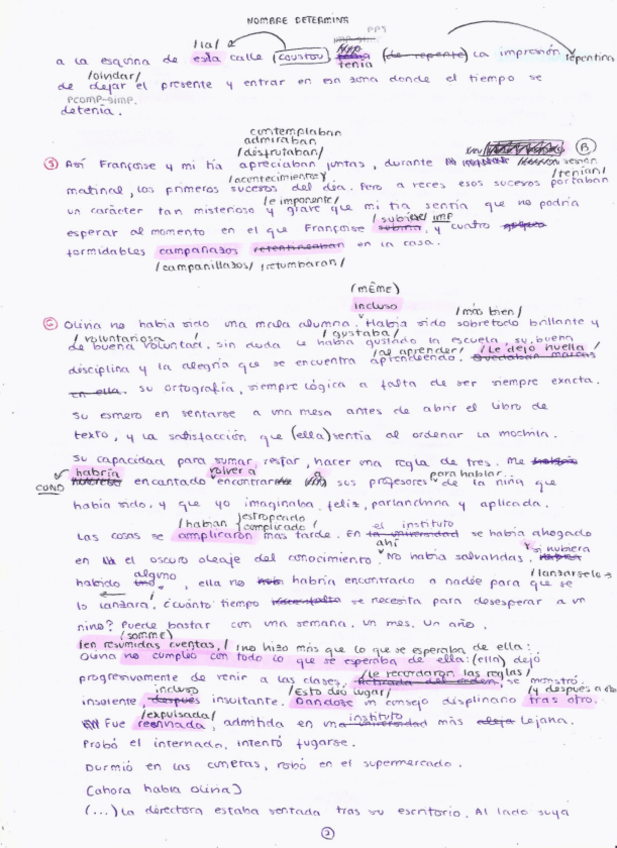 NOMBRE DETERMINA
PPS
/la/
a la esquina de esta calle (coustou) tenía (de repente) la impresión repentina
/olvidar/
de dejar el presente y entrar en esa zona donde el tiempo se
PCOMP-SIMP.
detenía.
contemplaban
admiraban
/disfrutaban/
B
Así Françoise y mi tía apreciaban juntas, durante sesión
/acontecimientos/ /tenían/
matinal, los primeros sucesos del día. Pero a veces esos sucesos portaban
/e imponente/
un carácter tan misterioso y grave que mi tía sentía que no podría
/subiese/ IMP
esperar al momento en el que Françoise subiría, y cuatro
formidables campanazos retentineaban en la casa.
/campanillazos/ /retumbaran/
(même)
incluso /más bien/
C Olina no había sido una mala alumna. Había sido sobretodo brillante y
/voluntariosa/ /gustaba/
de buena voluntad, sin duda le había gustado la escuela, su buena
/al aprender/ /Le dejó huella/
disciplina y la alegría que se encuentra aprendiendo. Quedaban marcas
en ella. Su ortografía, siempre lógica a falta de ser siempre exacta.
Su esmero en sentarse a una mesa antes de abrir el libro de
texto, y la satisfacción que (ella) sentía al ordenar la mochila.
Su capacidad para sumar, restar, hacer una regla de tres. Me
habría volver a a para hablar
COND encantado encontrar sus profesores de la niña que
había sido, y que yo imaginaba feliz, parlanchina y aplicada.
/habían estropeado complicado/
Las cosas se complicaron más tarde. En la universidad se había ahogado
el instituto
ahí si hubiera
en el oscuro oleaje del conocimiento. No había salvavidas.
alguno /lanzárselo
habido, ella no habría encontrado a nadie para que se
lo lanzara. ¿Cuánto tiempo se necesita para desesperar a un
niño? Puede bastar con una semana. Un mes. Un año.
(somme)
/en resumidas cuentas,/ /no hizo más que lo que se esperaba de ella:
Olina no cumpleó con todo lo que se esperaba de ella: (ella) dejó
/le recordaron las reglas/
progresivamente de venir a las clases, se mostró
incluso /Esto dió lugar/ /y después a otro
insolente, después insultante. Dándose un consejo displinario tras otro.
/expulsada/ instituto
Fue reenviada, admitida en una universidad más lejana.
Probó el internado, intentó fugarse.
Durmió en las cunetas, robó en el supermercado.
(ahora habla Olina)
(...) La directora estaba sentada tras su escritorio. Al lado suya
2